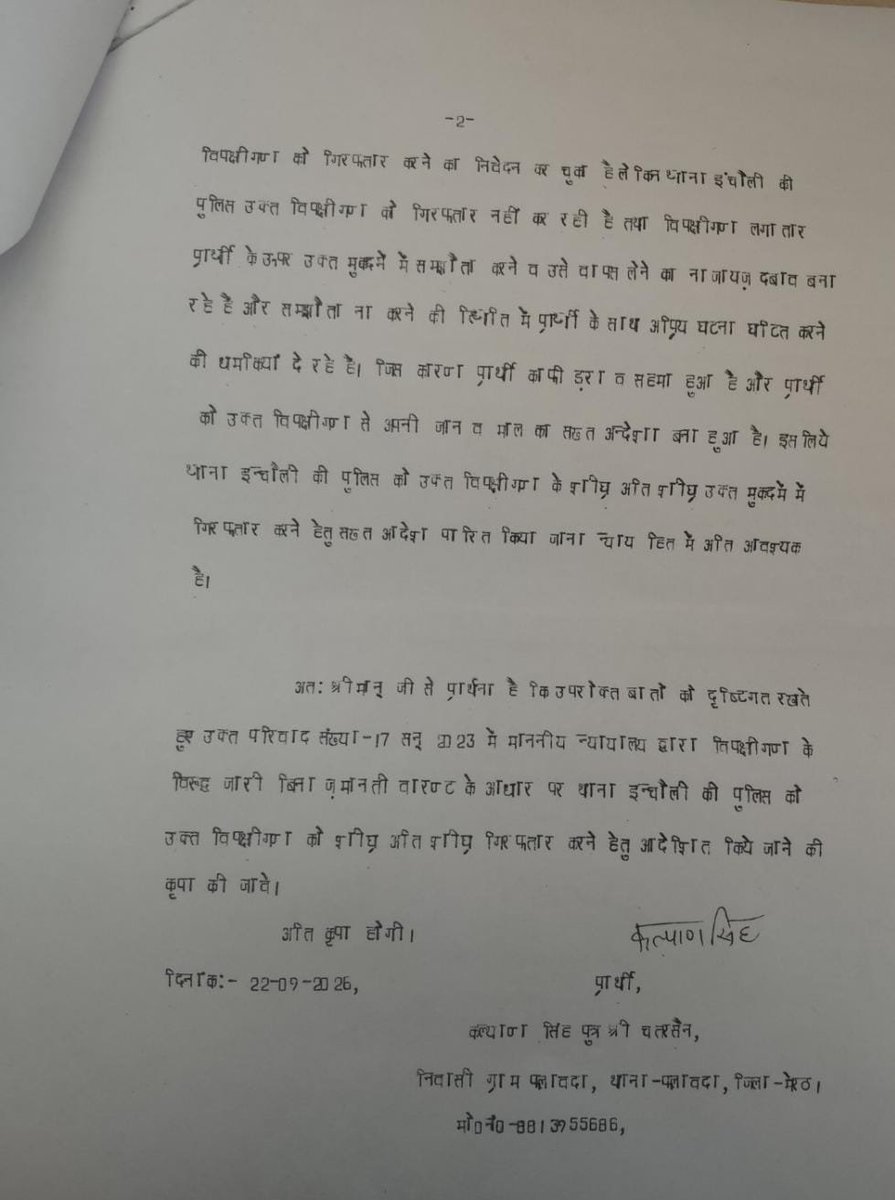 -2-
विपक्षीगण को गिरफ्तार करने का निवेदन कर चुका है लेकिन थाना इंचौली की
पुलिस उक्त विपक्षीगण को गिरफ्तार नहीं कर रही है तथा विपक्षीगण लगातार
प्रार्थी के ऊपर उक्त मुकदमें में समझौता करने व उसे वापस लेने का नाजायज़ दबाव बना
रहे है और समझौता ना करने की स्थिति में प्रार्थी के साथ अप्रिय घटना घटित करने
की धमकियाँ दे रहे है। जिस कारण प्रार्थी काफी ड़रा व सहमा हुआ है और प्रार्थी
को उक्त विपक्षीगण से अपनी जान व माल का सख्त अन्देशा बना हुआ है। इसलिये
थाना इन्चौली की पुलिस को उक्त विपक्षीगण के शीघ्र अति शीघ्र उक्त मुकदमें में
गिरफ्तार करने हेतु सख्त आदेश पारित किया जाना न्याय हित में अति आवश्यक
है।
अत: श्रीमान् जी से प्रार्थना है कि उपरोक्त बातों को दृष्टिगत रखते
हुए उक्त परिवाद संख्या-17 सन् 2023 में माननीय न्यायालय द्वारा विपक्षीगण के
विरूद्ध जारी बिना ज़मानती वारण्ट के आधार पर थाना इन्चौली की पुलिस को
उक्त विपक्षीगण को शीघ्र अति शीघ्र गिरफ्तार करने हेतु आदेशित किये जाने की
कृपा की जावे।
अति कृपा होगी।
कल्याण सिंह
दिनांक:- 22-09-2026,
प्रार्थी,
कल्याण सिंह पुत्र श्री चतरसैन,
निवासी ग्राम फलावदा, थाना-फलावदा, जिला-मेरठ।
मो0नं0-8813955686,